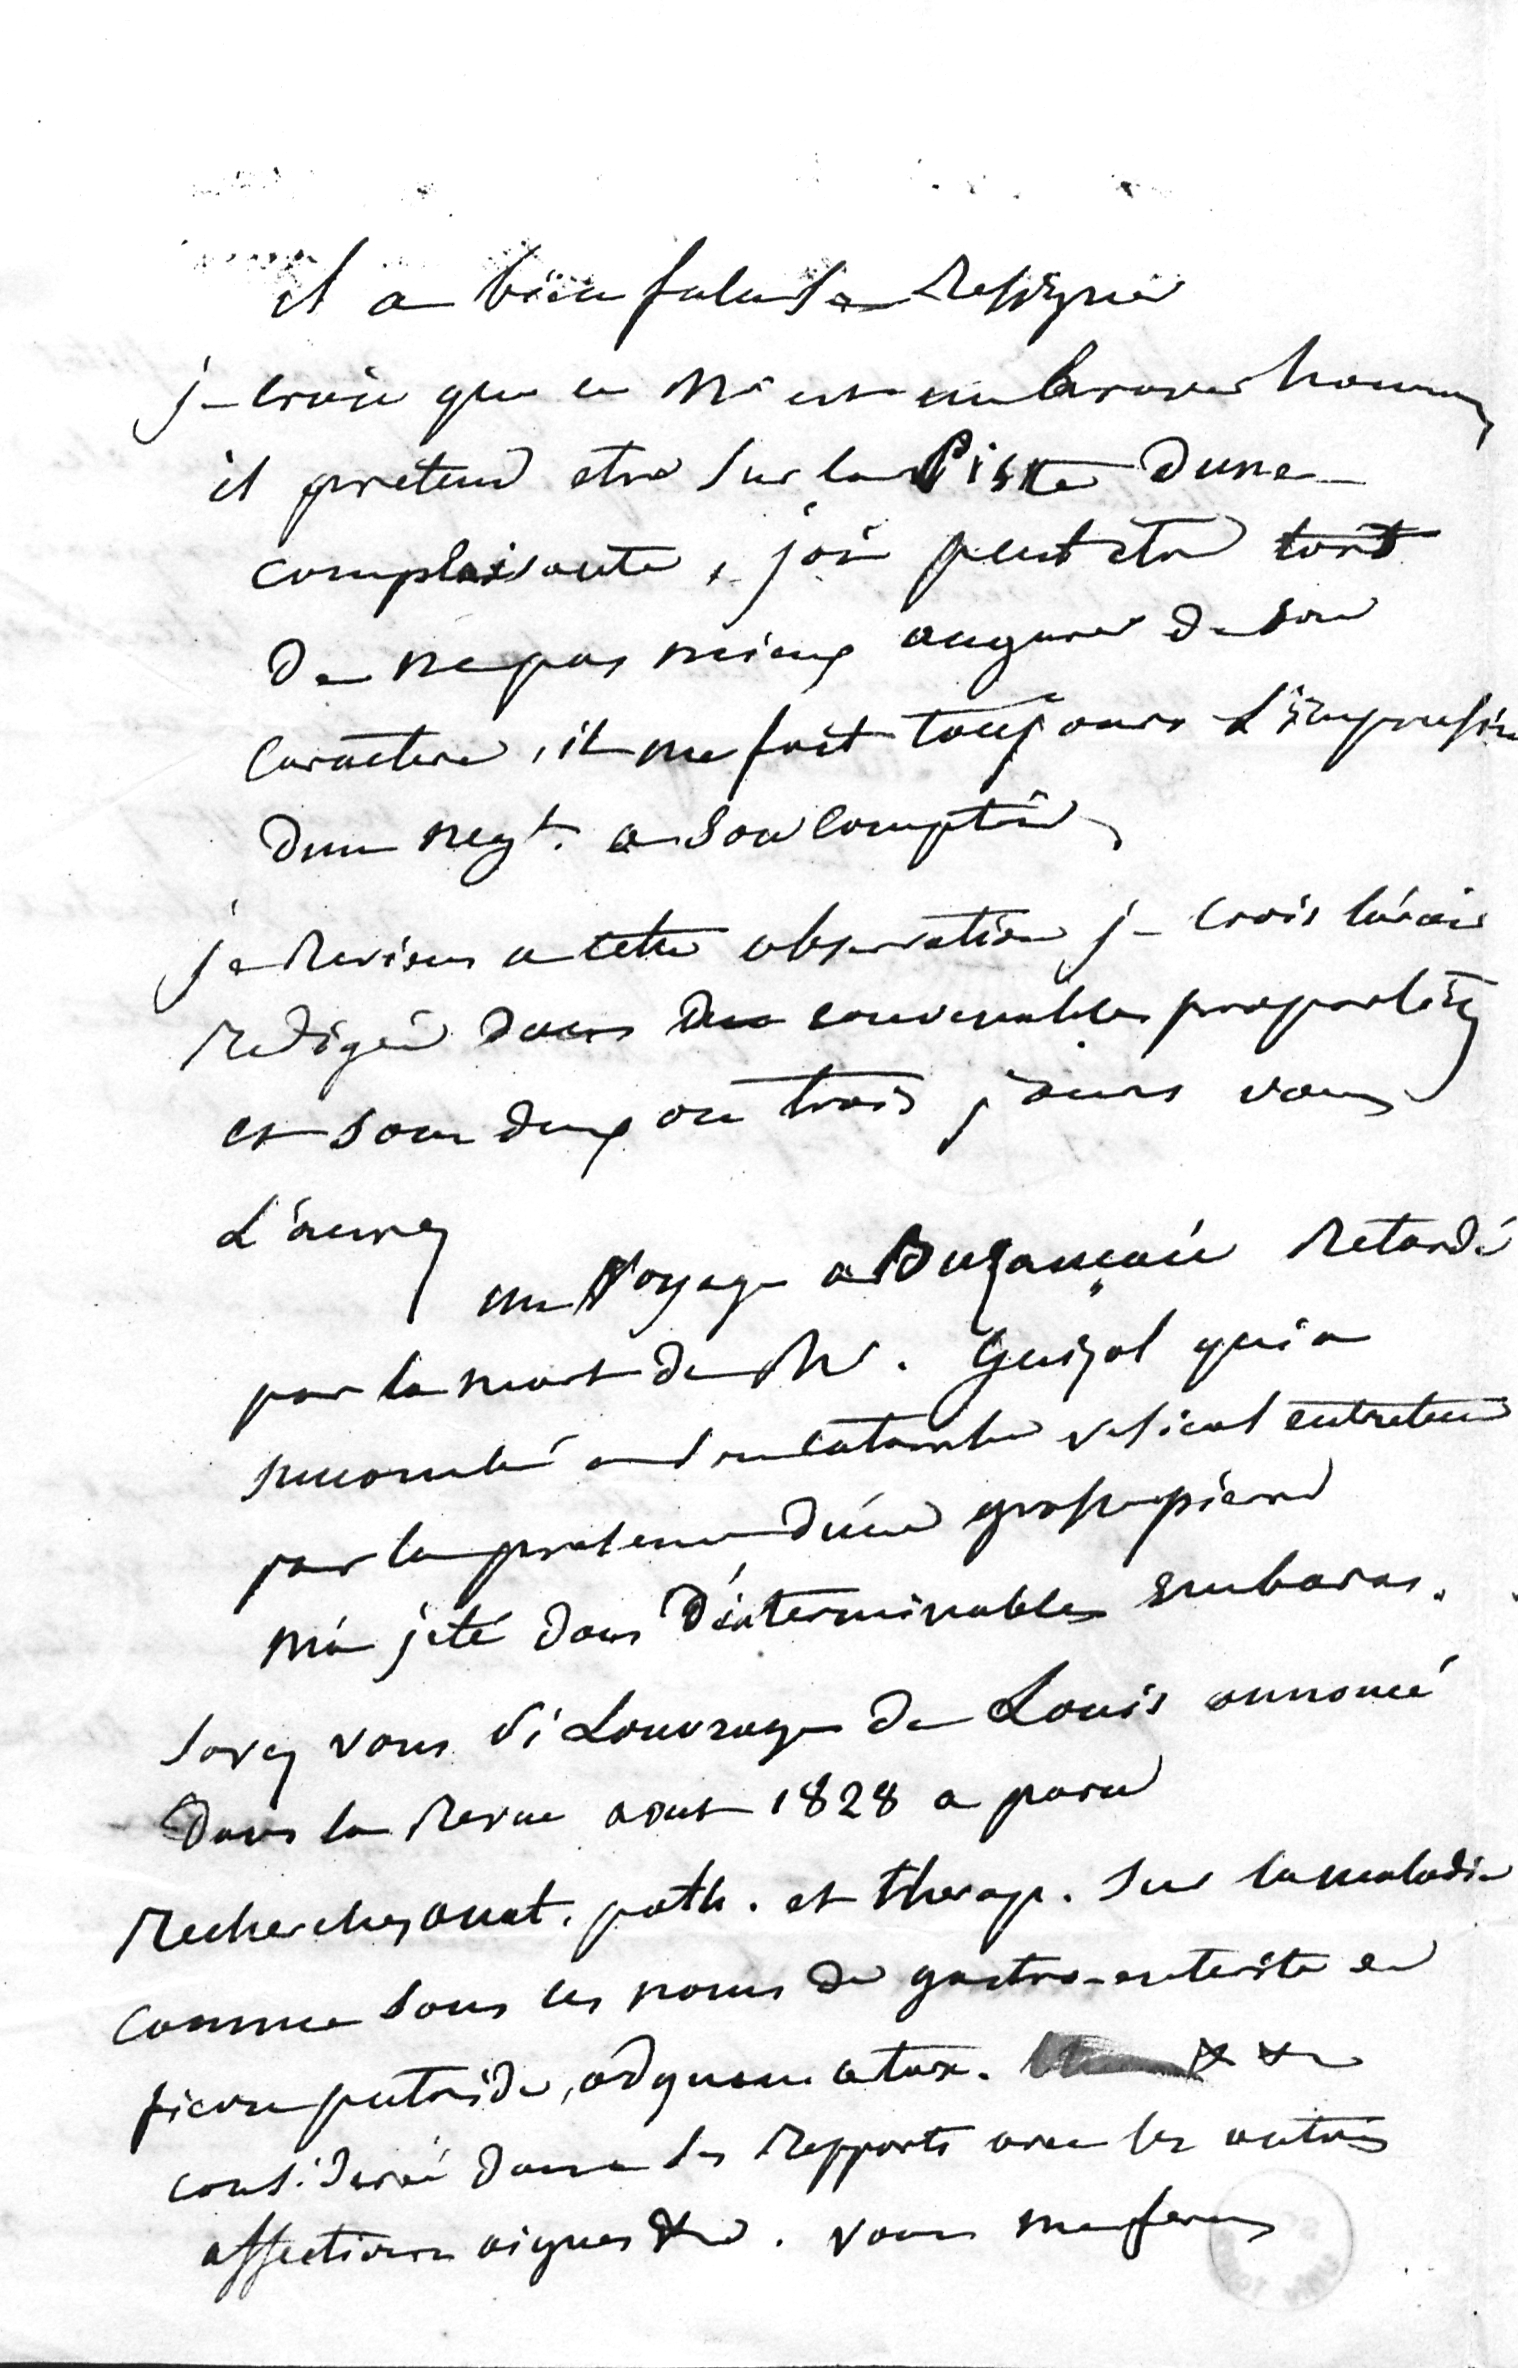 il a bien falu se ressigner
je crois que ce Mr est un brave homme
il pretend etre sur la Piste dune
complaisante, j'ai peut etre tort
de ne pas mieux augurer de son
caractere, il me fait toujours L'impression
dun negt. a son comptoir
je reviens a cette observation je crois l'avoir
redigé dans des convenables proportions
et sous deux ou trois jours vous
L'aurez
un Voyage a Buzançais retardé
par la mort de Mr. Guizol qui a
succombé a un catarrhe vesical entretenu
par la presence d'une grosse pierre
m'a jeté dans D'interminables embaras.
savez vous si Louvrage de Louis annoncé
Dans la Revue aout 1828 a paru
Recherches anat. path. et therap. sur la maladie
connue sous les noms de gastro-enterite
fievre putride, adyname atax.
consideré dans ses rapports avec les autres
affections aigues &c. vous me ferez